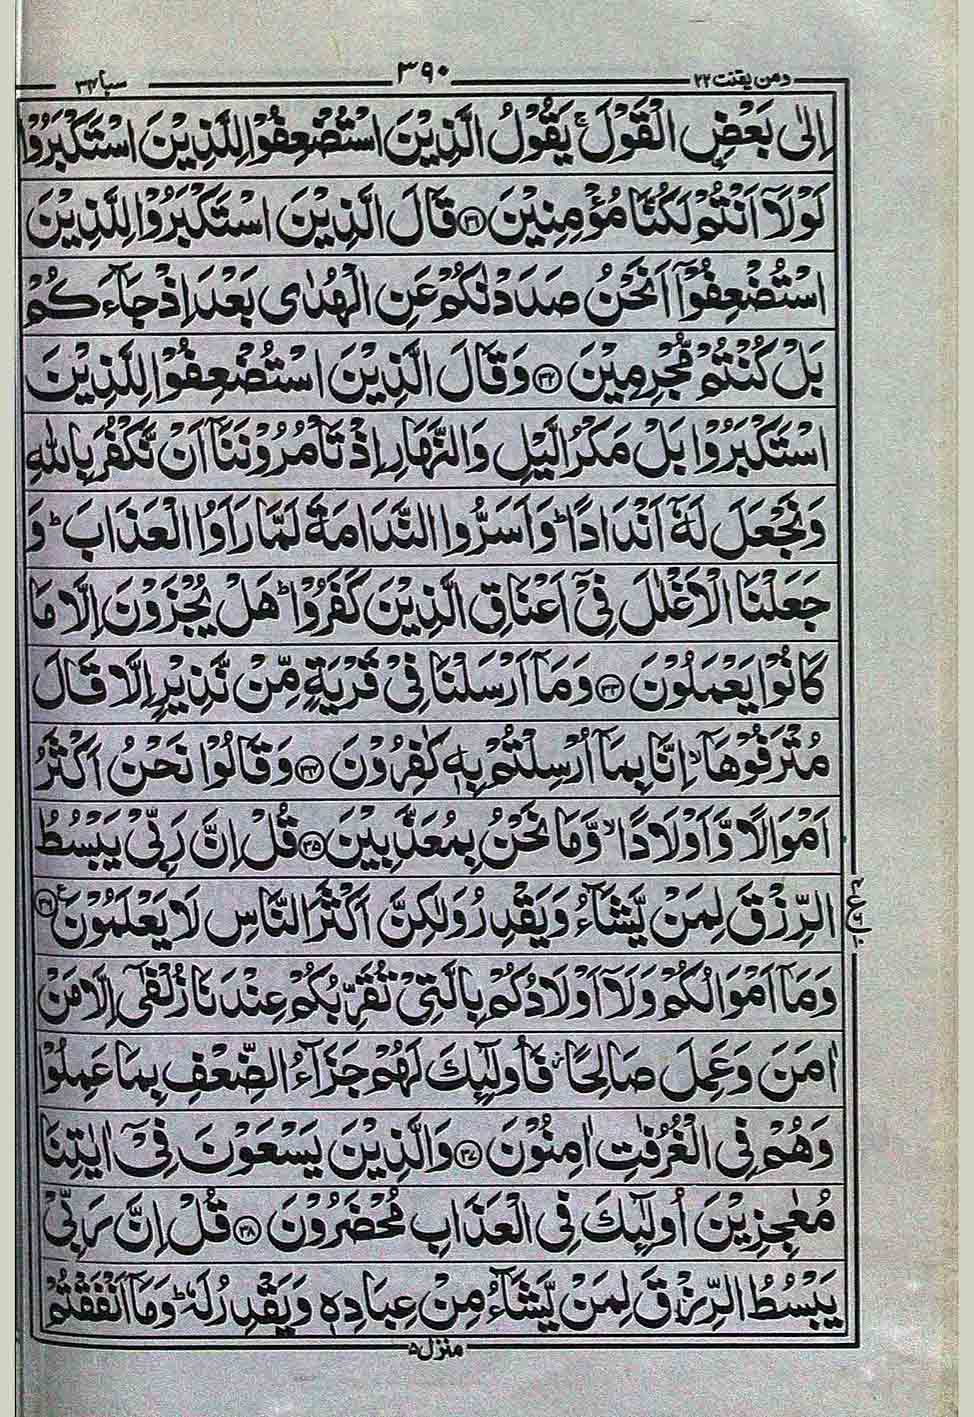 ومن يقنت ٢٢ ٣٩٠ سبا ٣٤
اِلٰى بَعْضِ ِۨالْقَوْلَ ۚ يَقُوْلُ الَّذِيْنَ اسْتُضْعِفُوْا لِلَّذِيْنَ اسْتَكْبَرُوْا
لَوْلَاۤ اَنْتُمْ لَكُنَّا مُؤْمِنِيْنَ ﴿٣١﴾ قَالَ الَّذِيْنَ اسْتَكْبَرُوْا لِلَّذِيْنَ
اسْتُضْعِفُوْۤا اَنَحْنُ صَدَدْنٰكُمْ عَنِ الْهُدٰى بَعْدَ اِذْ جَآءَكُمْ
بَلْ كُنْتُمْ مُّجْرِمِيْنَ ﴿٣٢﴾ وَقَالَ الَّذِيْنَ اسْتُضْعِفُوْا لِلَّذِيْنَ
اسْتَكْبَرُوْا بَلْ مَكْرُ الَّيْلِ وَالنَّهَارِ اِذْ تَاْمُرُوْنَنَاۤ اَنْ نَّكْفُرَ بِاللّٰهِ
وَنَجْعَلَ لَهٗۤ اَنْدَادًا ؕ وَاَسَرُّوا النَّدَامَةَ لَمَّا رَاَوُا الْعَذَابَ ؕ وَ
جَعَلْنَا الْاَغْلٰلَ فِيْۤ اَعْنَاقِ الَّذِيْنَ كَفَرُوْا ؕ هَلْ يُجْزَوْنَ اِلَّا مَا
كَانُوْا يَعْمَلُوْنَ ﴿٣٣﴾ وَمَاۤ اَرْسَلْنَا فِيْ قَرْيَةٍ مِّنْ نَّذِيْرٍ اِلَّا قَالَ
مُتْرَفُوْهَاۤ ۙ اِنَّا بِمَاۤ اُرْسِلْتُمْ بِهٖ كٰفِرُوْنَ ﴿٣٤﴾ وَقَالُوْا نَحْنُ اَكْثَرُ
اَمْوَالًا وَّاَوْلَادًا ۙ وَّمَا نَحْنُ بِمُعَذَّبِيْنَ ﴿٣٥﴾ قُلْ اِنَّ رَبِّيْ يَبْسُطُ
الرِّزْقَ لِمَنْ يَّشَآءُ وَيَقْدِرُ وَلٰكِنَّ اَكْثَرَ النَّاسِ لَا يَعْلَمُوْنَ ﴿٣٦﴾ ع
وَمَاۤ اَمْوَالُكُمْ وَلَاۤ اَوْلَادُكُمْ بِالَّتِيْ تُقَرِّبُكُمْ عِنْدَنَا زُلْفٰۤى اِلَّا مَنْ
اٰمَنَ وَعَمِلَ صَالِحًا ز فَاُولٰٓئِكَ لَهُمْ جَزَآءُ الضِّعْفِ بِمَا عَمِلُوْا
وَهُمْ فِي الْغُرُفٰتِ اٰمِنُوْنَ ﴿٣٧﴾ وَالَّذِيْنَ يَسْعَوْنَ فِيْۤ اٰيٰتِنَا
مُعٰجِزِيْنَ اُولٰٓئِكَ فِي الْعَذَابِ مُحْضَرُوْنَ ﴿٣٨﴾ قُلْ اِنَّ رَبِّيْ
يَبْسُطُ الرِّزْقَ لِمَنْ يَّشَآءُ مِنْ عِبَادِهٖ وَيَقْدِرُ لَهٗ ؕ وَمَاۤ اَنْفَقْتُمْ
منزل ٥